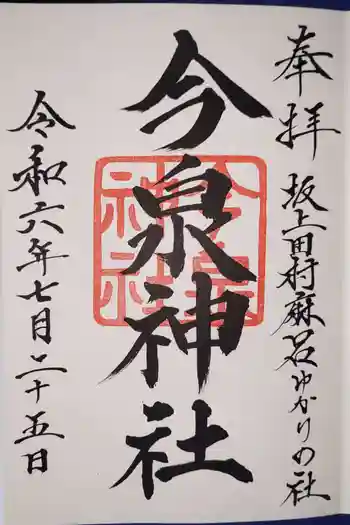 奉拝 坂上田村麻呂ゆかりの社
今泉神社
令和六年七月二十五日
今泉神社